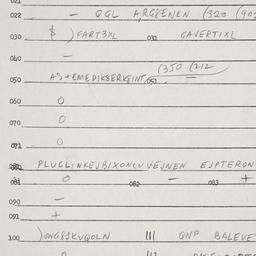 021
022 – GGL ARGKENEN (320 (90
030 $ )FART3XL 031 GAVERTIXL
040 –
050 A3+EMEDIKBERKGINT, 051 (350 (212 –
060 O
070 O
071 O
080 PLUCLINKEJBIXONCUVEJNEN EJPTERON
081 O 082 – 083 +
090 –
091 +
100 )ONG81KVQOLN ||| QNP BALEVE